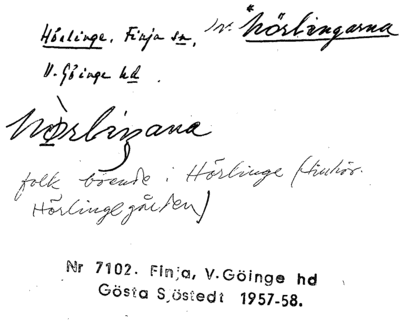 Hörlinge, Finja sn, Inv. "hörlingarna
V. Göinge hd
hörlingana
folk boende i Hörlinge (tillhör.
Hörlingegården)
Nr 7102. Finja, V.Göinge hd
Gösta Sjöstedt 1957-58.